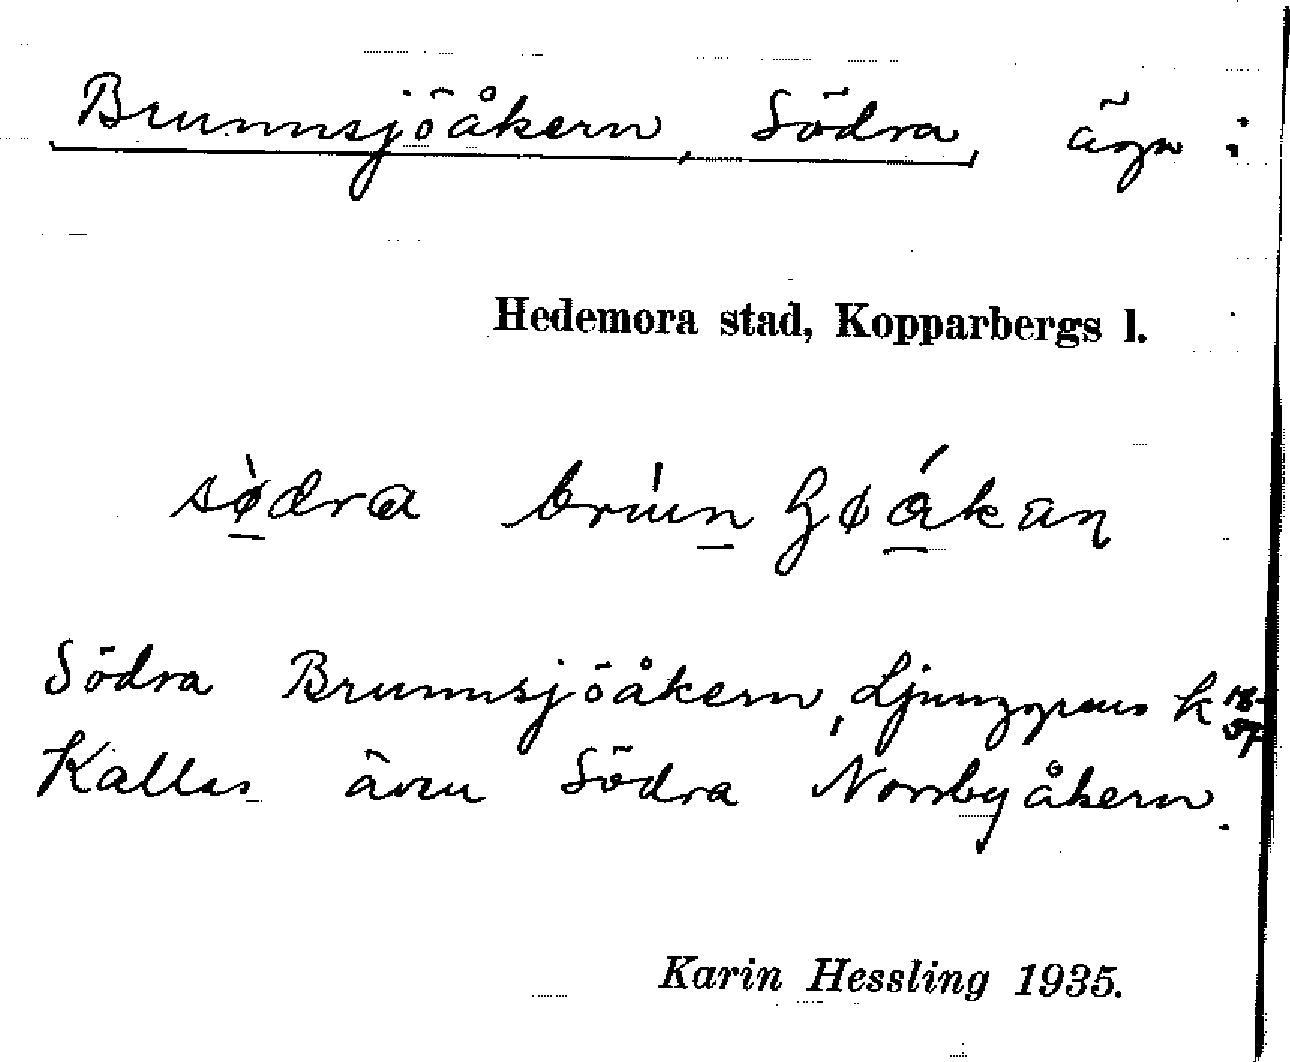 Brunnsjöåkern, Södra, ägn:
Hedemora stad, Kopparbergs l.
sø̀dra brúnʃøákan
Södra Brunnsjöåkern, Ljunggrens k
Kallas även Södra Norrbyåkern.
Karin Hessling 1935.